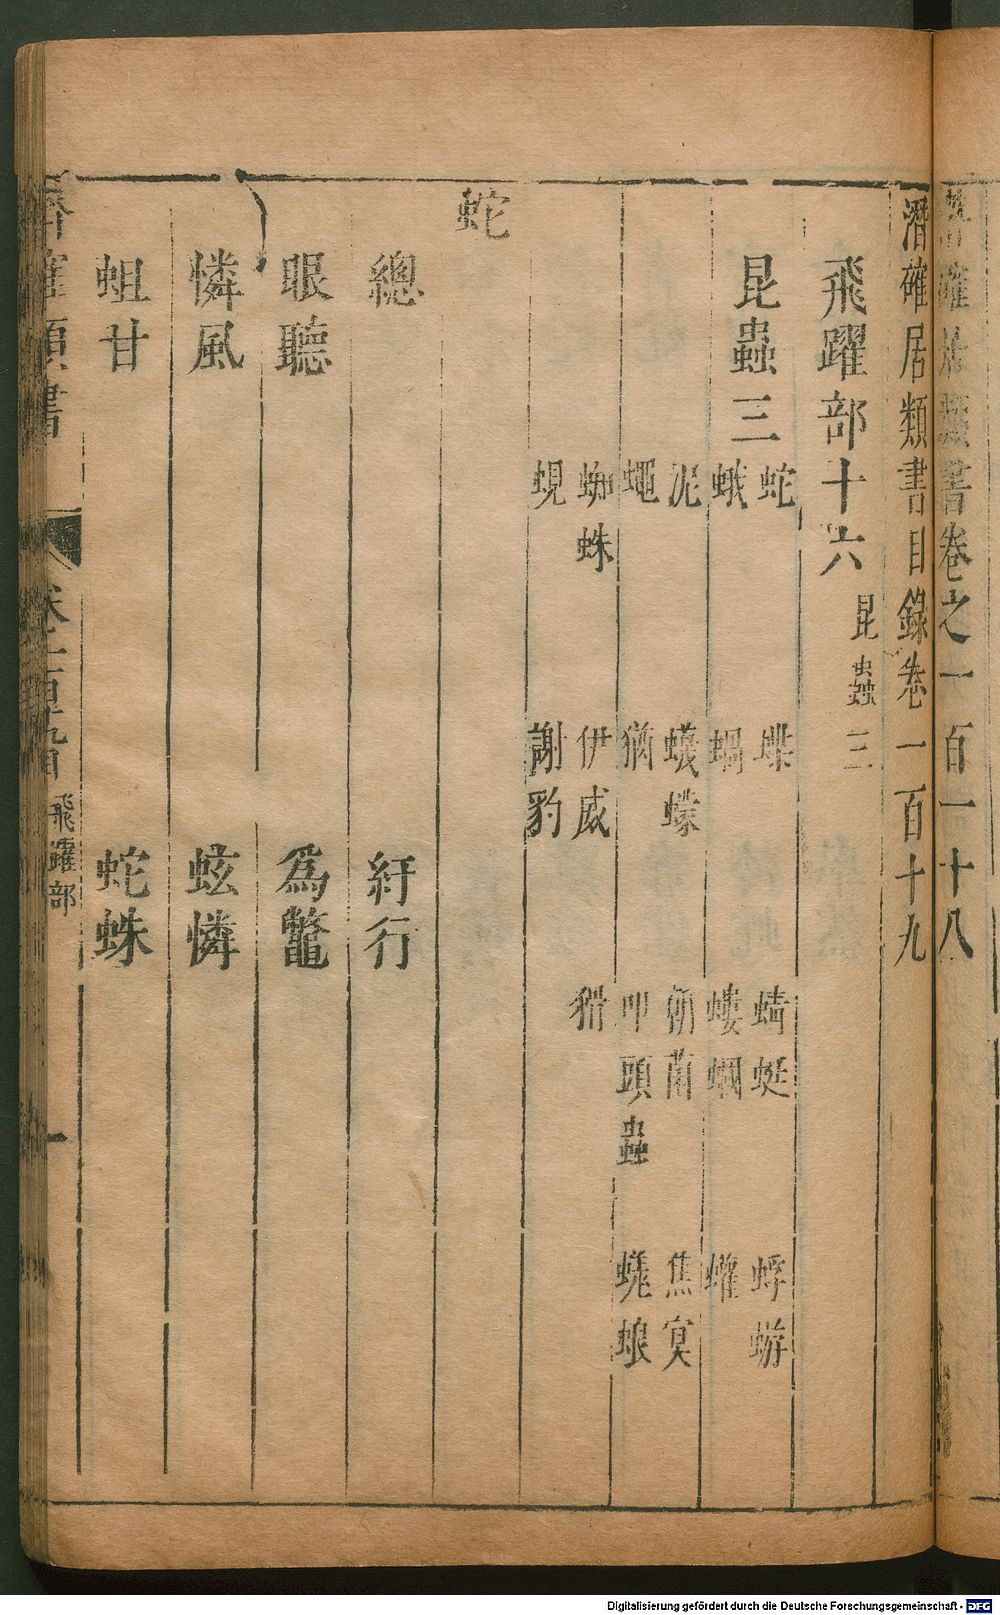 潛確居類書卷之一百一十八
潛確居類書目錄卷一百十九
飛躍部十六 昆蟲三
昆蟲三
蛇 蝶 蜻蜓 蜉蝣
蛾 蜩 螻蟈 蠸
泥 蠛蠓 焦冥
蠅 猶 叩頭蟲 蜣蜋
蜘蛛 伊威 猾
蜆 謝豹
蛇
總 紆行
眼聽 為鼈
憐風 蚿憐
蛆甘 蛇蛛
潛確類書 卷一百十九目 飛躍部 一
Digitalisierung gefördert durch die Deutsche Forschungsgemeinschaft - DFG